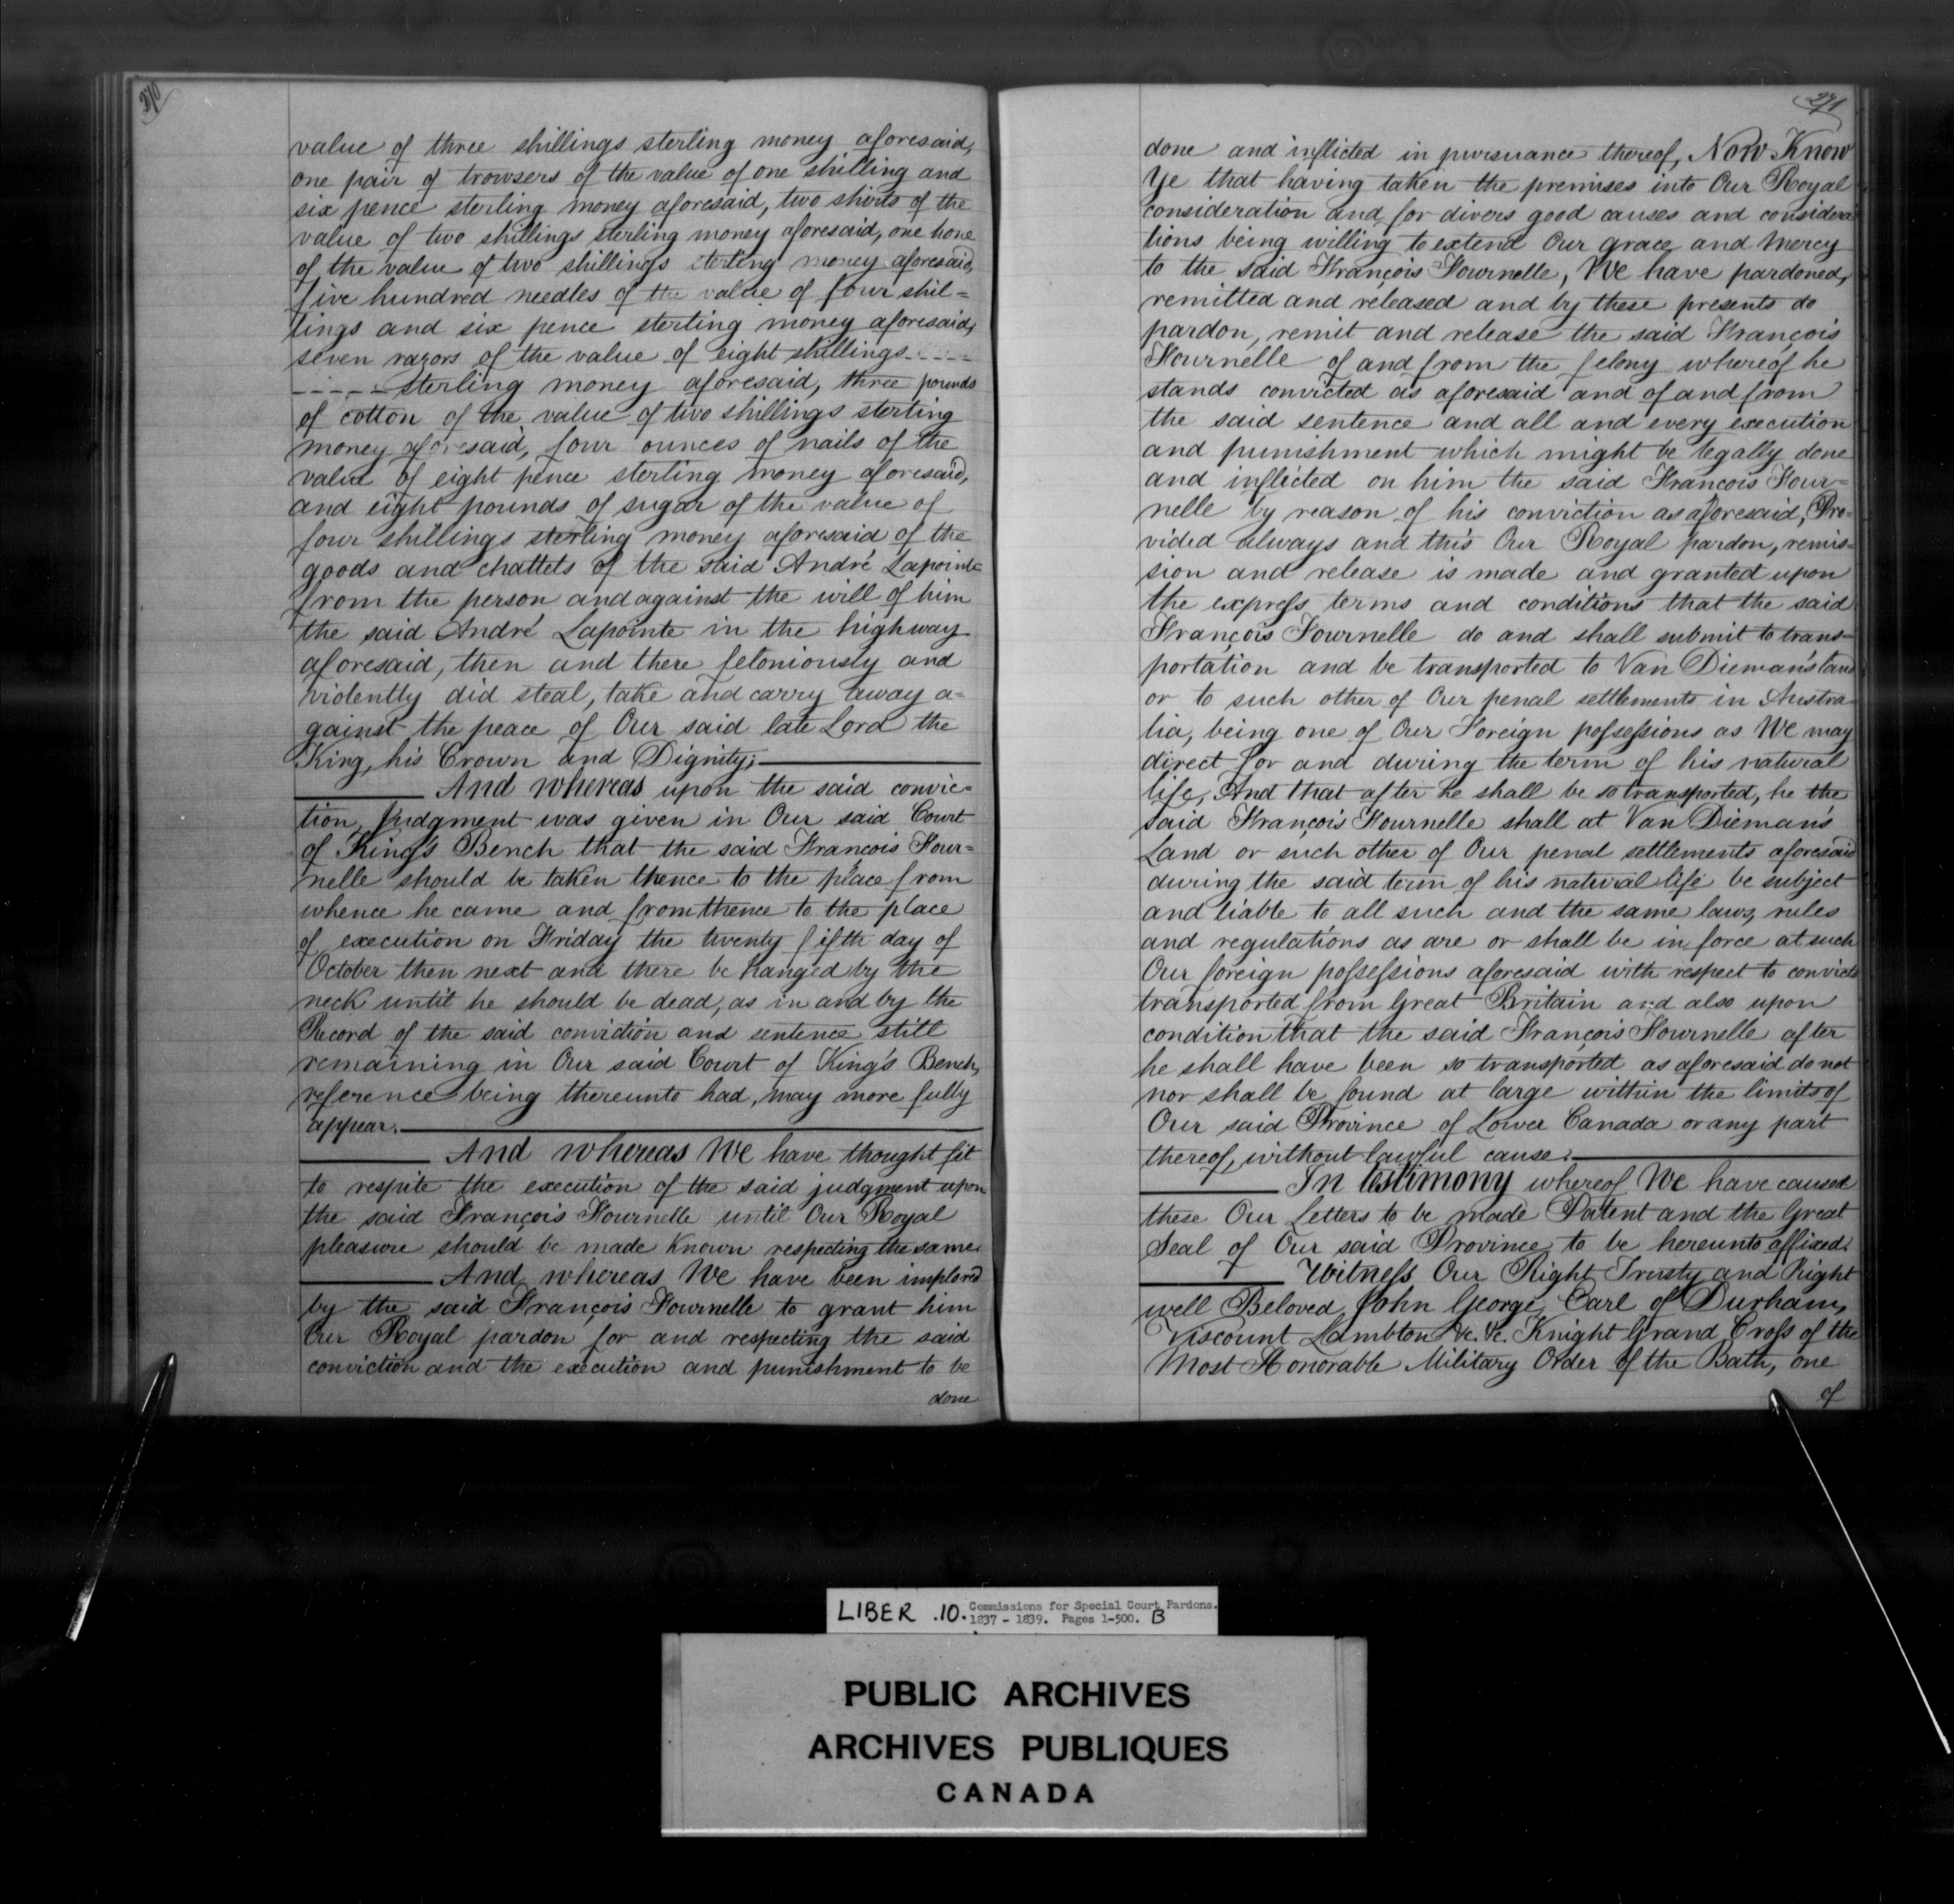 270
value of three shillings sterling money aforesaid,
one pair of trowsers of the value of one shilling and
six pence sterling money aforesaid, two shirts of the
value of two shillings sterling money aforesaid, one hone
of the value of two shillings sterling money aforesaid,
five hundred needles of the value of four shil=
lings and six pence sterling money aforesaid,
seven razors of the value of eight shillings
sterling money aforesaid, three pounds
of cotton of the value of two shillings sterling
money aforesaid, four ounces of nails of the
value of eight pence sterling money aforesaid,
and eight pounds of sugar of the value of
four shillings sterling money aforesaid of the
goods and chattels of the said André Lapointe
from the person and against the will of him
the said André Lapointe in the highway
aforesaid, then and there feloniously and
violently did steal, take and carry away a=
gainst the peace of Our said late Lord the
King, his Crown and Dignity;
And whereas upon the said convic=
tion, Judgment was given in Our said Court
of King's Bench that the said François Four=
nelle should be taken thence to the place from
whence he came and from thence to the place
of execution on Friday the twenty fifth day of
October then next and there be hanged by the
neck until he should be dead, as in and by the
Record of the said conviction and sentence still
remaining in Our said Court of King's Bench,
reference being thereunto had, may more fully
appear.
And whereas We have thought fit
to respite the execution of the said judgment upon
the said François Fournelle until Our Royal
pleasure should be made known respecting the same.
And whereas We have been implored
by the said François Fournelle to grant him
Our Royal pardon for and respecting the said
conviction and the execution and punishment to be
done
271
done and inflicted in pursuance thereof, Now Know
Ye that having taken the premises into Our Royal
consideration and for divers good causes and considera
tions being willing to extend Our grace and mercy
to the said François Fournelle, We have pardoned,
remitted and released and by these presents do
pardon, remit and release the said François
Fournelle of and from the felony whereof he
stands convicted as aforesaid and of and from
the said sentence and all and every execution
and punishment which might be legally done
and inflicted on him the said Francois Four=
nelle by reason of his conviction as aforesaid, Pro=
vided always and this Our Royal pardon, remis=
sion and release is made and granted upon
the express terms and conditions that the said
François Fournelle do and shall submit to trans=
portation and be transported to Van Dieman's land
or to such other of Our penal settlements in Austra=
lia, being one of Our Foreign possessions as We may
direct for and during the term of his natural
life, And that after he shall be so transported, he the
said François Fournelle shall at Van Dieman's
Land or such other of Our penal settlements aforesaid
during the said term of his natural life be subject
and liable to all such and the same laws, rules
and regulations as are or shall be in force at such
Our foreign possessions aforesaid with respect to convicts
transported from Great Britain and also upon
condition that the said François Fournelle after
he shall have been so transported as aforesaid do not
nor shall be found at large within the limits of
Our said Province of Lower Canada or any part
thereof, without lawful cause.
In testimony whereof We have caused
these Our Letters to be made Patent and the Great
Seal of Our said Province to be hereunto affixed.
Witness Our Right Trusty and Right
well Beloved John George, Earl of Durham,
Viscount Lambton &c. &c. Knight Grand Cross of the
Most Honorable Military Order of the Bath, one
of
LIBER .10. Commissions for Special Court Pardons.
1837 - 1839. Pages 1-500. B
PUBLIC ARCHIVES
ARCHIVES PUBLIQUES
CANADA